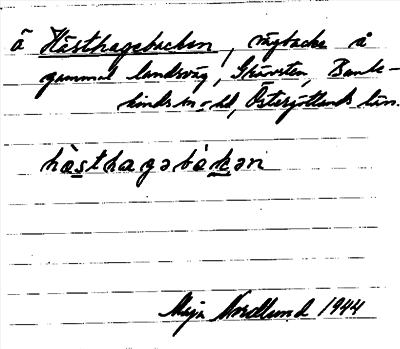 å Hästhagebacken, vägbacke å
gammal landsväg, Skärvsten, Banke-
kinds sn o hd, Östergötlands län.
hàsthagəbákən
Maja Nordlund 1944